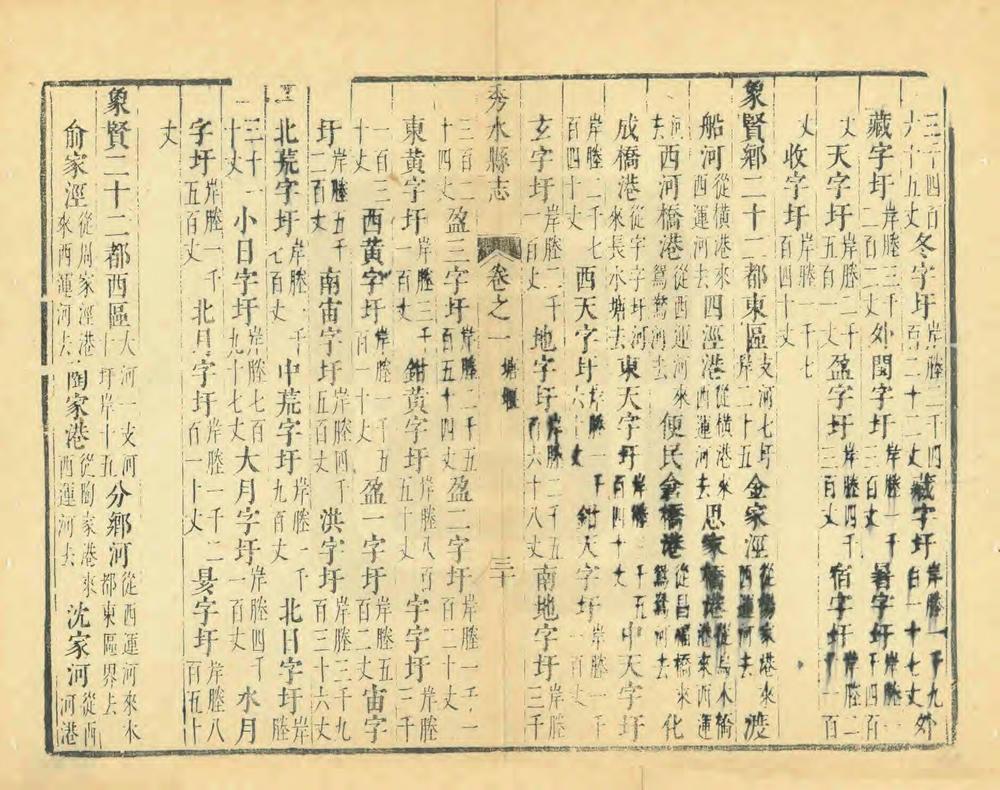 三千四百六十五丈冬字圩岸塍二千四百二十二丈藏字圩岸塍一千九百一十七丈外
藏字圩岸塍三千二百二丈外閏字圩岸塍一千三百丈暑字圩岸塍一千四百
丈天字圩岸塍二千五百一丈盈字圩岸塍四千三百丈宿字圩岸塍二千一百
丈收字圩岸塍一千七百四十丈
象賢鄉二十二都東區支河七圩岸二十五金家涇從楊家港來西運河去渡
船河從橫港來西運河去四涇港從橫港來西運河去思家橋港從烏木橋港來西運
河去西河橋港從西運河來鴛鴦河去便民倉橋港從昌礄橋來鴛鴦河去化
成橋港從字字圩河來長水塘去東天字圩岸塍一千五百四十丈中天字圩
岸塍二千七百四十丈西天字圩岸塍一千六十丈鉗天字圩岸塍一千一百丈
玄字圩岸塍二千一百丈地字圩岸塍二千五百六十八丈南地字圩岸塍三千
秀水縣志 卷之一 塘堰 三十
三百二十四丈盈三字圩岸塍二千五百五十四丈盈二字圩岸塍一千一百二十丈
東黃字圩岸塍三千一百丈鉗黃字圩岸塍八百五十丈字字圩岸塍三千
一百三十丈西黃字圩岸塍一千五百一十丈盈一字圩岸塍五百二丈宙字
圩岸塍五千二百丈南宙字圩岸塍四千五百丈洪字圩岸塍三千九百三十六丈
北荒字圩岸塍一千七百丈中荒字圩岸塍一千九百丈北日字圩岸塍
三千一十丈小日字圩岸塍七百九十七丈大月字圩岸塍四千一百丈水月
字圩岸塍一千五百丈北月字圩岸塍一千二百一十丈昃字圩岸塍八百五十
丈
象賢二十二都西區大河一支河十圩岸十五分鄉河從西運河來木都東區界去
俞家涇從周家涇港來西運河去陶家港從陶家港來西運河去沈家河從西河港